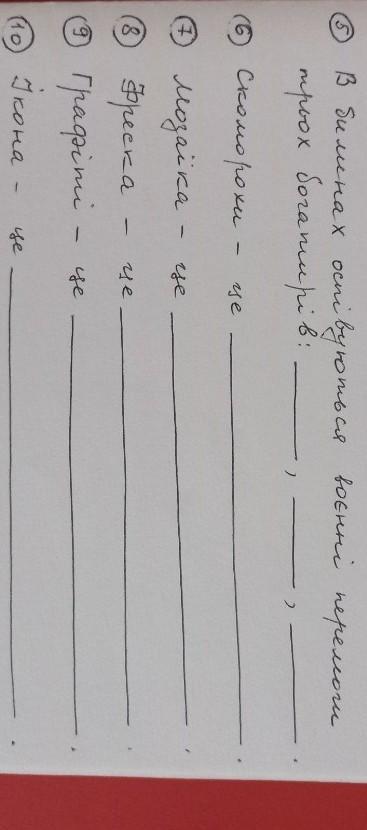 ⑤ В билинах оспівуються воєнні перемоги
трьох богатирів: ______, ______, ______.
⑥ Скоморохи – це ______.
⑦ Мозаїка – це ______.
⑧ Фреска – це ______.
⑨ Графіті – це ______.
⑩ Ікона – це ______.